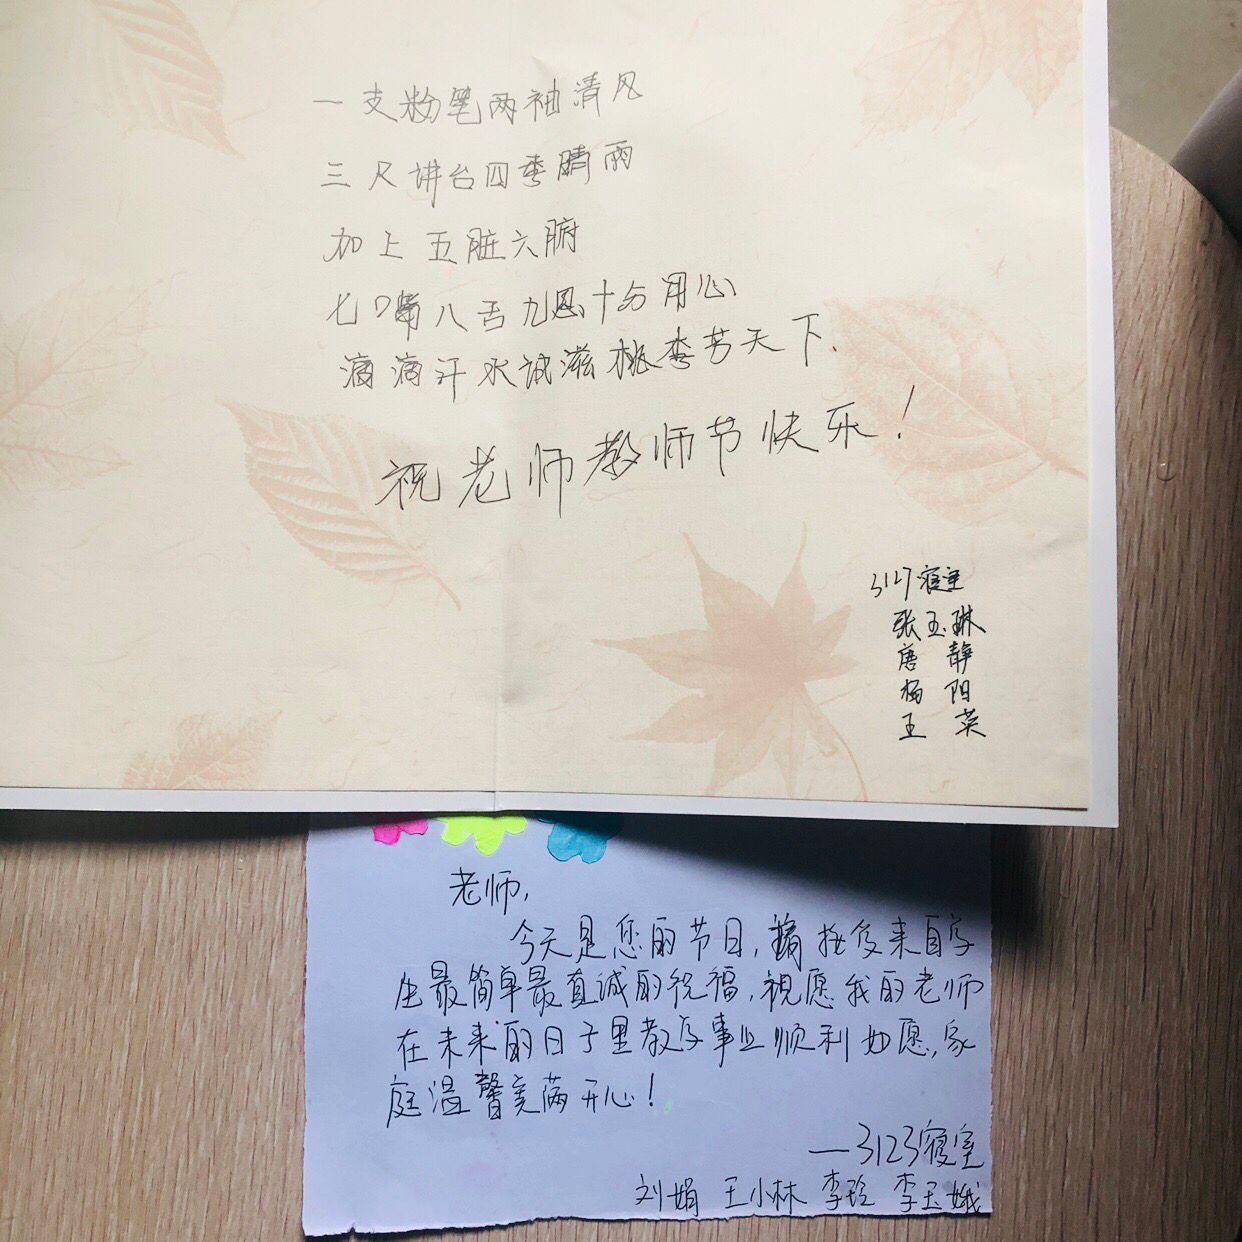 一支粉笔两袖清风
三尺讲台四季晴雨
加上五脏六腑
七嘴八舌九思十分用心
滴滴汗水诚滋桃李芳天下.
祝老师教师节快乐!
3127寝室
张玉琳
唐静
杨阳
王英
老师,
今天是您的节日,接受来自学
生最简单最真诚的祝福,祝愿我的老师
在未来的日子里教学事业顺利如愿,家
庭温馨美满开心!
—3123寝室
刘娟 王小林 李玲 李玉娥